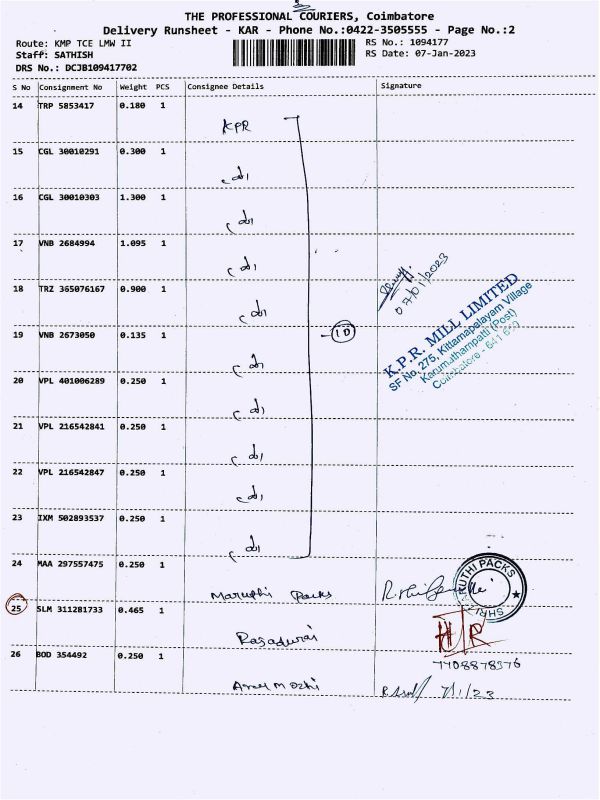 THE PROFESSIONAL COURIERS, Coimbatore
Delivery Runsheet - KAR - Phone No.:0422-3505555 - Page No.:2
Route: KMP TCE LMW II RS No.: 1094177
Staff: SATHISH RS Date: 07-Jan-2023
DRS No.: DCJB109417702
S No Consignment No Weight PCS Consignee Details Signature
14 TRP 5853417 0.180 1
KPR
15 CGL 30010291 0.300 1
16 CGL 30010303 1.300 1
17 VNB 2684994 1.095 1
07/01/2023
18 TRZ 365076167 0.900 1
K.P.R. MILL LIMITED
SF No. 275, Kittampalayam Village
Karumathampatti (Post)
Coimbatore - 641
10
19 VNB 2673050 0.135 1
20 VPL 401006289 0.250 1
21 VPL 216542841 0.250 1
22 VPL 216542847 0.250 1
23 IXM 502893537 0.250 1
24 MAA 297557475 0.250 1
Maruthi Packs
SHRI MARUTHI PACKS
25 SLM 311281733 0.465 1
Rasadurai
H/R
7708878376
26 BOD 354492 0.250 1
7/1/23